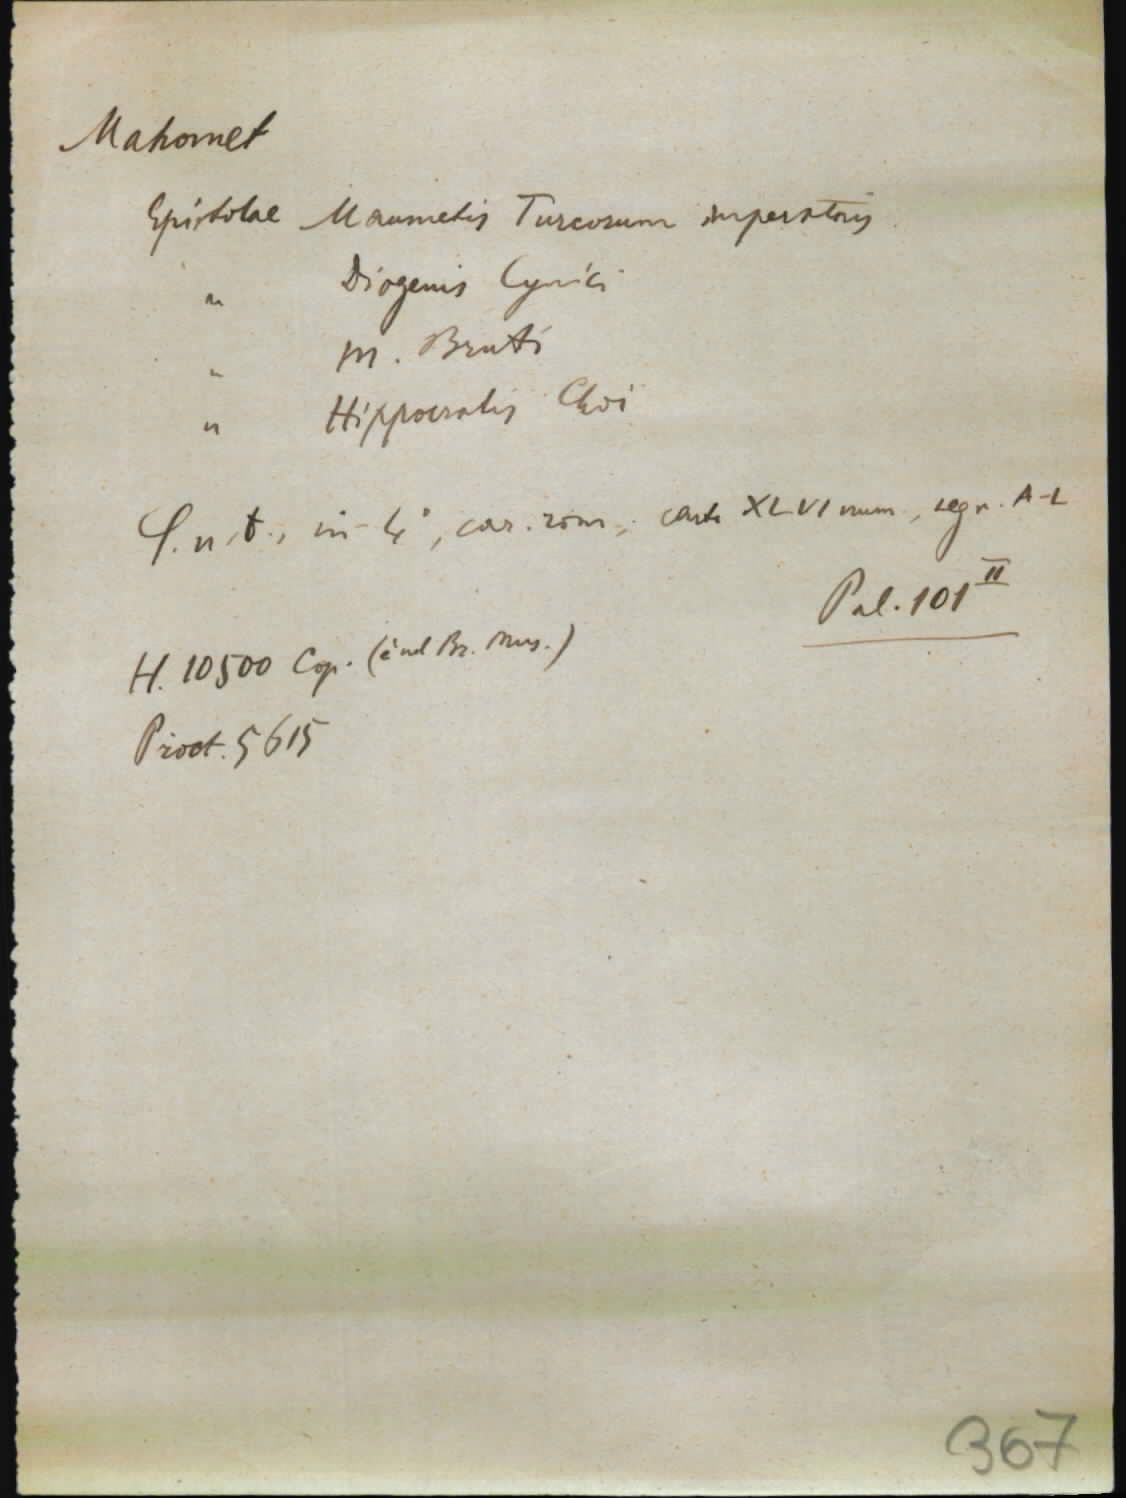 Mahomet
Epistolae Maumetis Turcorum imperatoris
" Diogenis Cynici
" M. Bruti
" Hippocratis Choi
S. n. t., in-4°, car. rom., carte XLVI num., segn. A-L
Pal. 101 II
H. 10500 Cop. (è nel Br. Mus.)
Proct. 5615
367